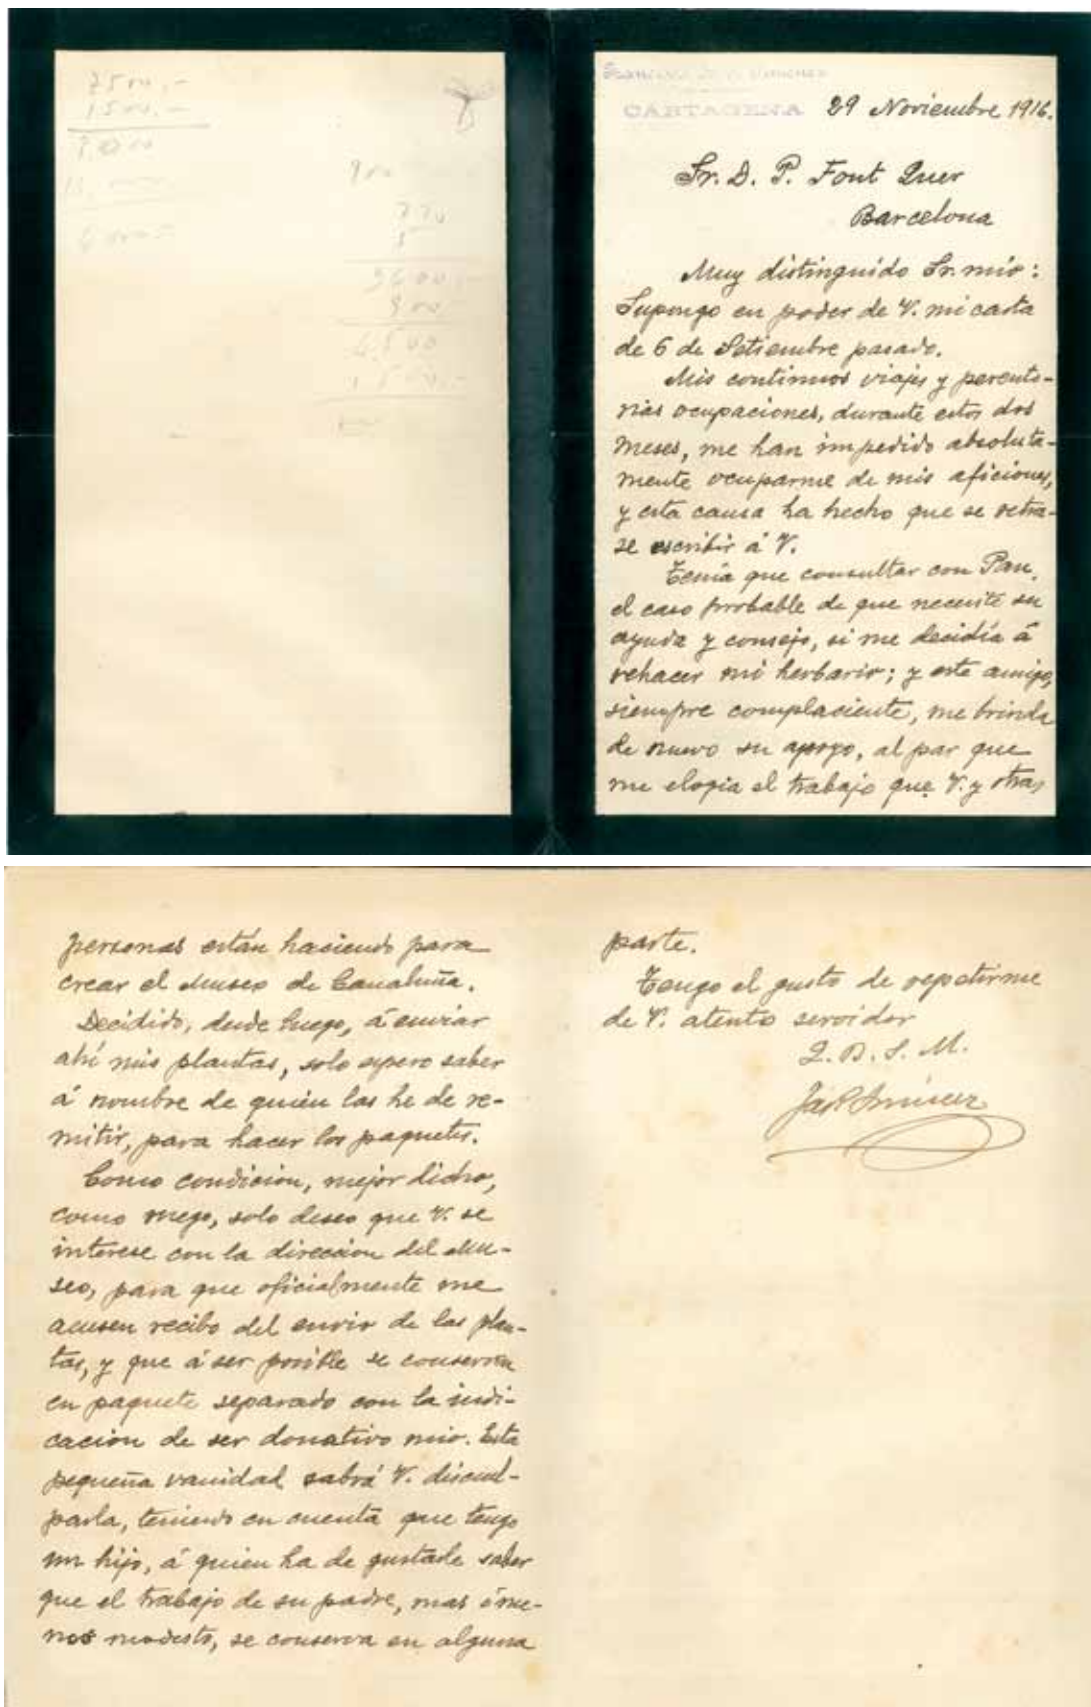 7500.-
1500.-
900
770
3600
900
CARTAGENA 29 Noviembre 1916.
Sr. D. P. Font Quer
Barcelona
Muy distinguido Sr. mío:
Supongo en poder de V. mi carta
de 6 de Setiembre pasado.
Mis continuos viajes y perento-
rias ocupaciones, durante estos dos
meses, me han impedido absoluta-
mente ocuparme de mis aficiones,
y esta causa ha hecho que se retra-
se escribir á V.
Tenía que consultar con Pau,
el caso probable de que necesite su
ayuda y consejo, si me decidía á
rehacer mi herbario; y este amigo,
siempre complaciente, me brinda
de nuevo su apoyo, al par que
me elogia el trabajo que V. y otras
personas están haciendo para
crear el Museo de Cataluña.
Decidido, desde luego, á enviar
ahí mis plantas, solo espero saber
á nombre de quién las he de re-
mitir, para hacer los paquetes.
Como condición, mejor dicho,
como ruego, solo deseo que V. se
interese con la dirección del Mu-
seo, para que oficialmente me
acusen recibo del envío de las plan-
tas, y que á ser posible se conserven
en paquete separado con la indi-
cación de ser donativo mío. Esta
pequeña vanidad sabrá V. discul-
parla, teniendo en cuenta que tengo
un hijo, á quien ha de gustarle saber
que el trabajo de su padre, mas ó me-
nos modesto, se conserva en alguna
parte.
Tengo el gusto de repetirme
de V. atento servidor
Q. B. S. M.